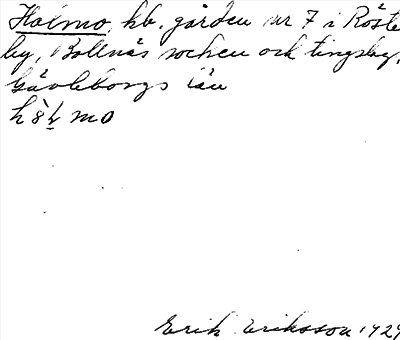 Holmo, hb. gården nr 7 i Röste
by, Bollnäs socken och tingslag,
Gävleborgs län
mo
Erik Eriksson 1929